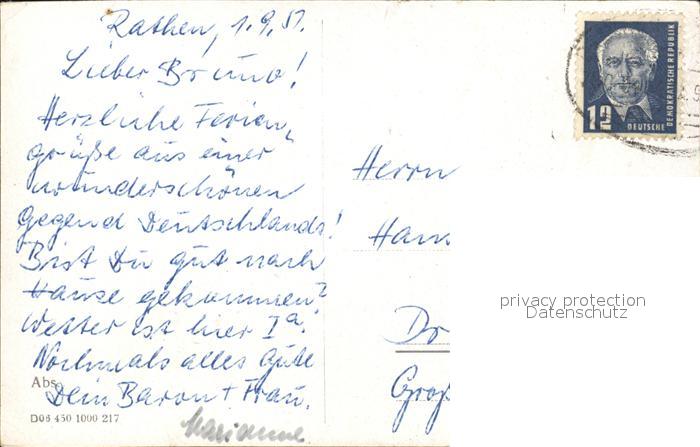 Rathen, 1.9.51.
Lieber Bruno!
Herzliche Ferien-
grüße aus einer
wunderschönen
Gegend Deutschlands!
Bist Du gut nach
Hause gekommen?
Wetter ist hier Ia.
Nochmals alles Gute
Abs.
Dein Baron + Frau.
Marianne
D06 450 1000 217
12
DEUTSCHE
DEMOKRATISCHE REPUBLIK
Herrn
Hans
Dr
Groß
privacy protection
Datenschutz